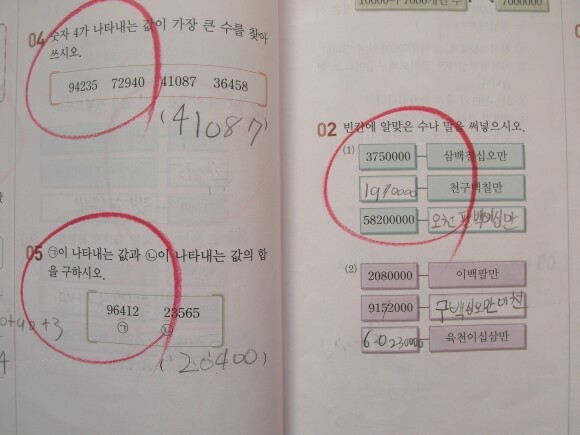 04 숫자 4가 나타내는 값이 가장 큰 수를 찾아
쓰시오.
94235 72940 41087 36458
(41087)
05 ㉠이 나타내는 값과 ㉡이 나타내는 값의 합
을 구하시오.
96412 23565
㉠ ㉡
(20400)
7000000
02 빈칸에 알맞은 수나 말을 써넣으시오.
(1) 3750000 삼백칠십오만
천구백칠만
58200000 오천팔백이십만
(2) 2080000 이백팔만
9152000 구백십오만이천
60230000 육천이십삼만